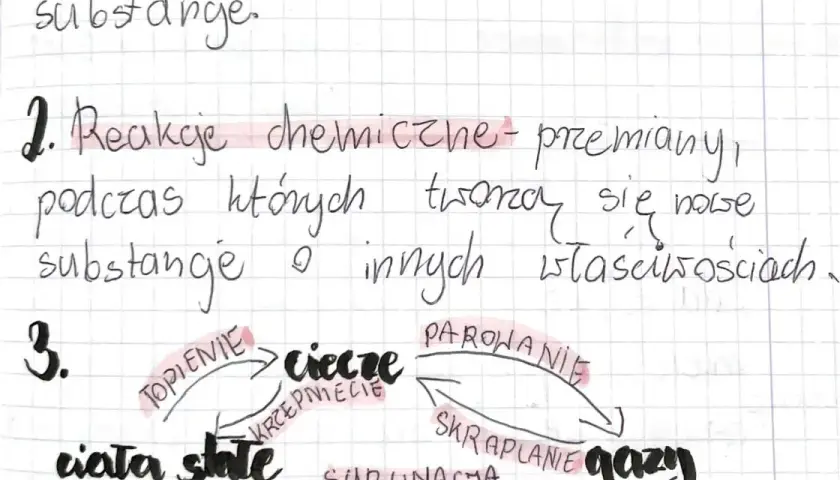 substancje.
2. Reakcje chemiczne - przemiany,
podczas których tworzą się nowe
substancje o innych właściwościach.
3.
TOPIENIE
ciecze
PAROWANIE
KRZEPNIĘCIE
SKRAPLANIE
ciała stałe
gazy